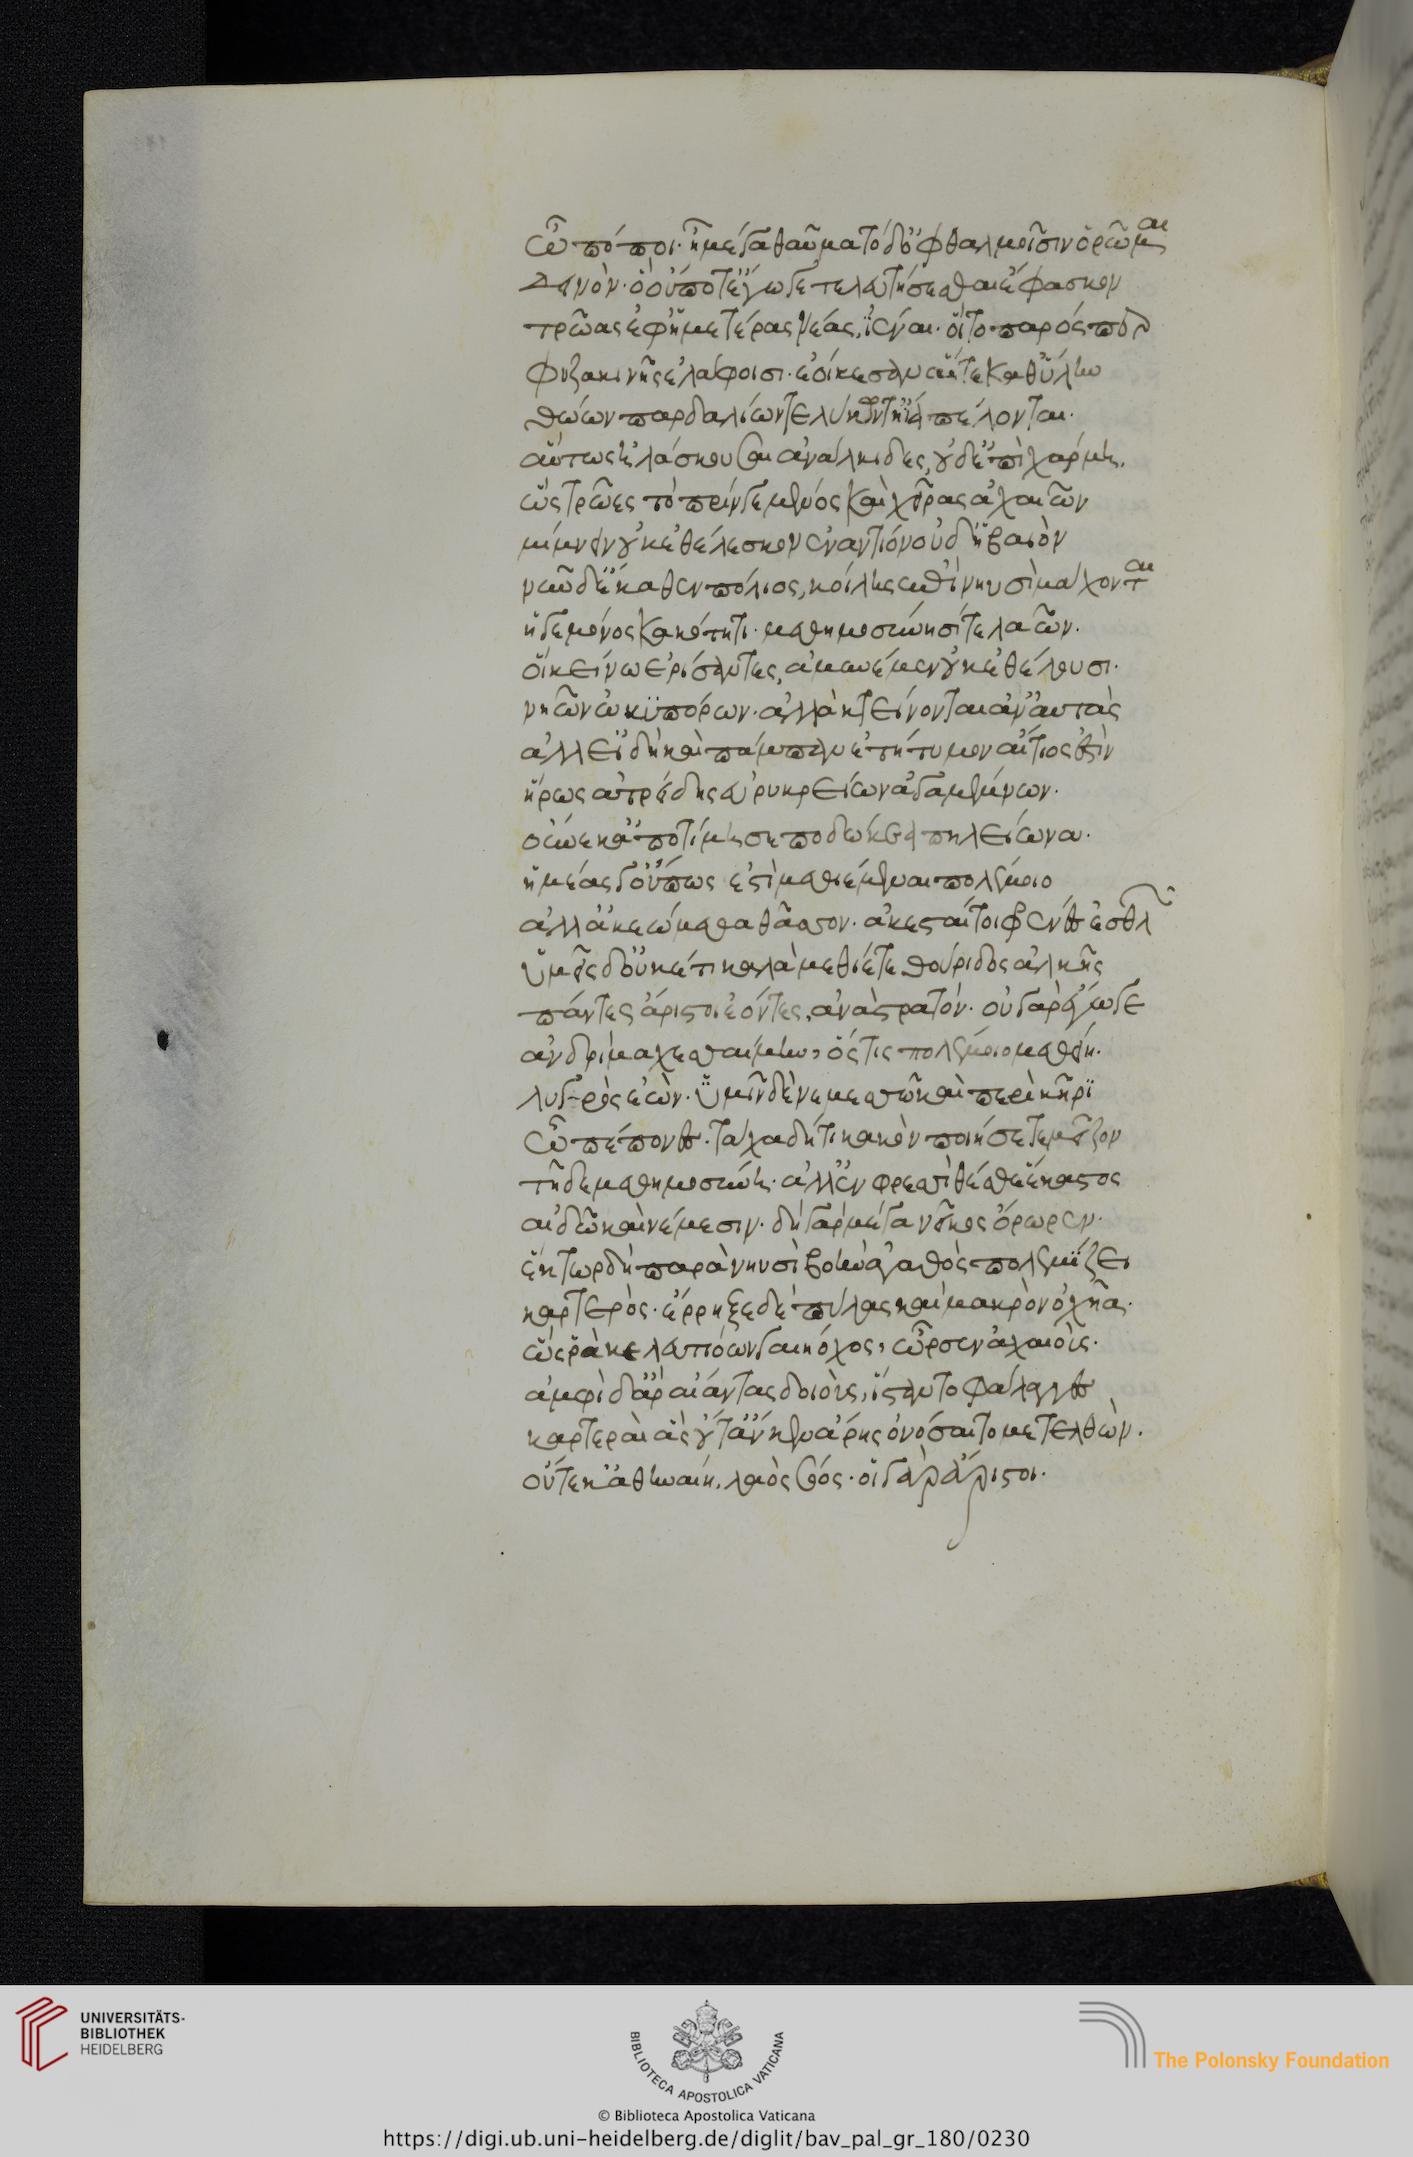 ὢ πόποι· ἦ μέγα θαῦμα τόδ' ὀφθαλμοῖσιν ὁρῶμαι
δεινὸν· ὃ οὔποτ' ἔγωγε τελευτήσεσθαι ἔφασκον
τρῶας ἐφ' ἡμετέρας νέας, ἰέναι· οἳ τοπαρός περ
φυζακινῆς ἐλάφοισι· ἐοίκεσαν αἵτε καθ' ὕλην
θώων παρδαλίων τε λύκων τ' ἤϊα πέλονται·
αὔτως ἠλάσκουσαι ἀνάλκιδες, οὐδ' ἔπι χάρμη.
ὣς τρῶες τὸ πρίν γε μένος καὶ χεῖρας ἀχαιῶν
μίμνειν οὐκ ἐθέλεσκον ἐναντίον οὐδ' ἠβαιὸν
νῦν δ' ἕκαθεν πόλιος, κοίλης ἐπὶ νηυσὶ μάχονται
ἡγεμόνος κακότητι· μεθημοσύνησί τε λαῶν·
οἳ κείνω ἐρίσαντες, ἀμυνέμεν οὐκ ἐθέλουσι·
νηῶν ὠκϋπόρων· ἀλλὰ κτείνονται ἀν' αὐτὰς
ἀλλ' εἰ δὴ καὶ πάμπαν ἐτήτυμον αἴτιος ἐστὶν
ἥρως ἀτρείδης εὐρυκρείων ἀγαμέμνων·
οὕνεκ' ἀπητίμησε ποδώκεα πηλείωνα·
ἡμέας γ' οὔπως ἐστὶ μεθιέμεναι πολέμοιο
ἀλλ' ἀκεώμεθα θᾶσσον· ἀκεσταί τοι φρένες ἐσθλῶν
ὑμεῖς δ' οὐκέτι καλὰ μεθίετε θούριδος ἀλκῆς
πάντες ἄριστοι ἐόντες, ἀνὰ στρατόν· οὐδ' ἂρ ἔγωγε
ἀνδρὶ μαχεσαίμην, ὅς τις πολέμοιο μεθείη·
λυγρὸς ἐὼν· ὑμῖν δὲ νεμεσσῶμαι περὶ κῆρϊ
ὦ πέπονες· τάχα δή τι κακὸν ποιήσετε μεῖζον
τῆδε μεθημοσύνη· ἀλλ' ἐν φρεσὶ θέσθε ἕκαστος
αἰδῶ καὶ νέμεσιν· δὴ γὰρ μέγα νεῖκος ὄρωρεν·
ἕκτωρ δὴ παρὰ νηυσὶ βοὴν ἀγαθὸς πολεμίζει
καρτερὸς· ἔρρηξε δὲ πύλας καὶ μακρὸν ὀχῆα·
ὥς ῥα κελευτιόων γαιήοχος, ὦρσεν ἀχαιοὺς·
ἀμφὶ δ' ἂρ αἴαντας δοιοὺς, ἵσταντο φάλαγγες
καρτεραὶ ἃς οὔτ' ἄν κεν ἄρης ὀνόσαιτο μετελθὼν.
οὔτε κ' ἀθηναίη, λαοσσόος· οἳ γὰρ ἄριστοι·
UNIVERSITÄTS-
BIBLIOTHEK
HEIDELBERG
BIBLIOTECA APOSTOLICA VATICANA
The Polonsky Foundation
© Biblioteca Apostolica Vaticana
https://digi.ub.uni-heidelberg.de/diglit/bav_pal_gr_180/0230